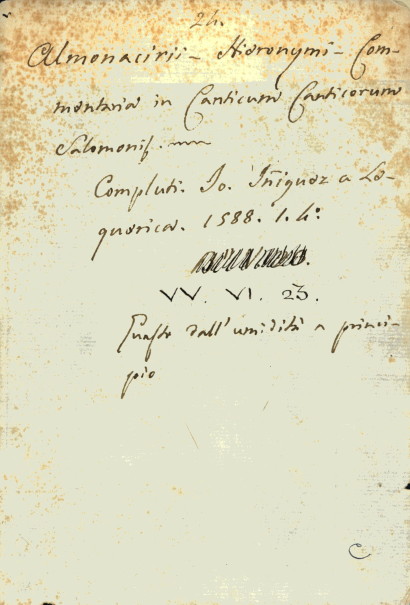 24.
Almonacirii - Hieronymi - Com-
mentaria in Canticum Canticorum
Salomonis.
Compluti. Jo. Iñiguez a Le-
querica. 1588. 1. 4°.
VV. VI. 23.
Guasto dall'umidità a princi-
pio
C